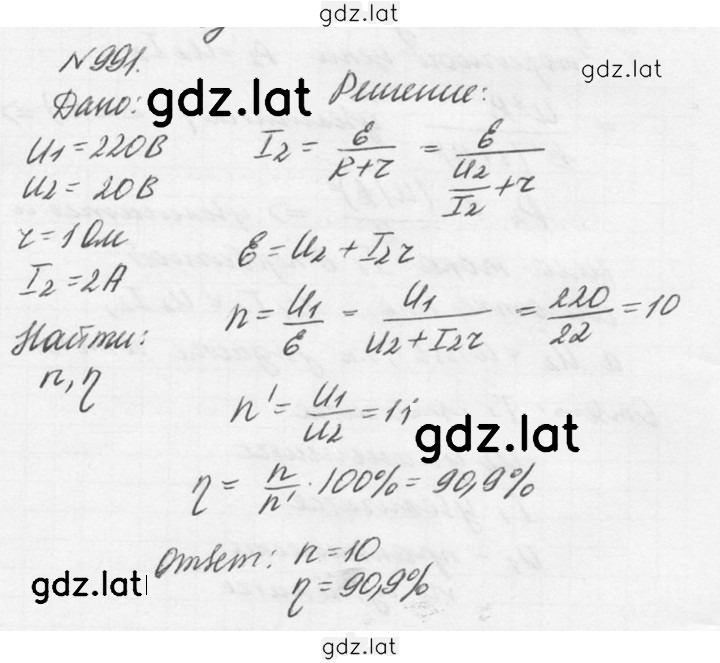 gdz.lat
№991.
gdz.lat
Дано:
gdz.lat
Решение:
U1 = 220В
U2 = 20В
r = 1 Ом
I2 = 2А
Найти:
n, η
I2 = ℰ/(R+r) = ℰ/(U2/I2 + r)
ℰ = U2 + I2r
n = U1/ℰ = U1/(U2 + I2r) = 220/22 = 10
n' = U1/U2 = 11
gdz.lat
η = n/n' · 100% = 90,9%
Ответ: n = 10
η = 90,9%
gdz.lat
gdz.lat